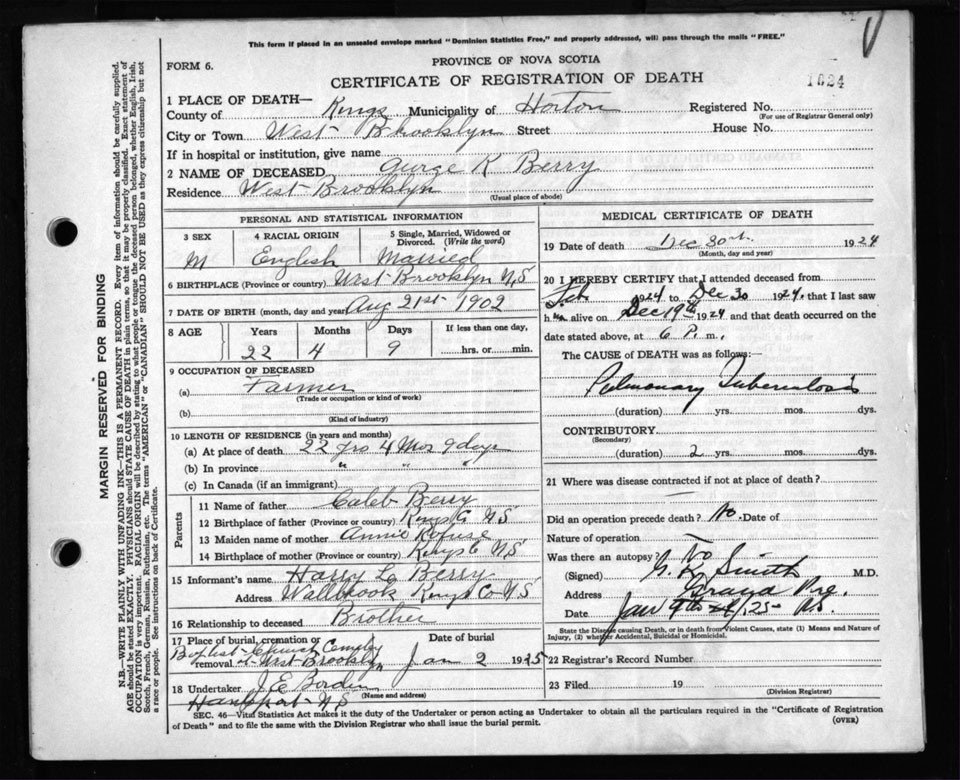 This form if placed in an unsealed envelope marked "Dominion Statistics Free," and properly addressed, will pass through the mails "FREE."
FORM 6.
PROVINCE OF NOVA SCOTIA
CERTIFICATE OF REGISTRATION OF DEATH
1024
1 PLACE OF DEATH—
County of Kings Municipality of Horton Registered No.
(For use of Registrar General only)
City or Town West Brooklyn Street House No.
If in hospital or institution, give name
2 NAME OF DECEASED George K Berry
Residence West Brooklyn
(Usual place of abode)
PERSONAL AND STATISTICAL INFORMATION
3 SEX 4 RACIAL ORIGIN 5 Single, Married, Widowed or Divorced. (Write the word)
M English Married
6 BIRTHPLACE (Province or country) West Brooklyn N,S
7 DATE OF BIRTH (month, day and year) Aug 21st 1902
8 AGE Years Months Days If less than one day,
22 4 9 hrs. or min.
9 OCCUPATION OF DECEASED
(a) Farmer
(Trade or occupation or kind of work)
(b)
(Kind of industry)
10 LENGTH OF RESIDENCE (in years and months)
(a) At place of death 22 yrs 4 Mos 9 days
(b) In province " " "
(c) In Canada (if an immigrant)
Parents
11 Name of father Caleb Berry
12 Birthplace of father (Province or country) Kings Co N S
13 Maiden name of mother Annie
14 Birthplace of mother (Province or country) Kings Co N,S
15 Informant's name Harry L Berry
Address Wallbrook Kings Co N S
16 Relationship to deceased Brother
17 Place of burial, cremation or removal Baptist Church Cemetery at West Brooklyn
Date of burial Jan 2 1925
18 Undertaker J. E Borden
(Name and address)
Hantsport N S
MEDICAL CERTIFICATE OF DEATH
19 Date of death Dec 30th 1924
(Month, day and year)
20 I HEREBY CERTIFY that I attended deceased from
Feb 1924 to Dec 30 1924, that I last saw
him alive on Dec 19th 1924 and that death occurred on the
date stated above, at 6 P. m.,
The CAUSE of DEATH was as follows:
Pulmonary Tuberculosis
(duration) yrs. mos. dys.
CONTRIBUTORY
(Secondary)
(duration) 2 yrs. mos. dys.
21 Where was disease contracted if not at place of death?
Did an operation precede death? No. Date of
Nature of operation —
Was there an autopsy? No
(Signed) Smith M.D.
Address Grand Pre,
Date Jan 9th 1925
State the Disease causing Death, or in death from Violent Causes, state (1) Means and Nature of Injury, (2) whether Accidental, Suicidal or Homicidal.
22 Registrar's Record Number
23 Filed 19
(Division Registrar)
SEC. 46—Vital Statistics Act makes it the duty of the Undertaker or person acting as Undertaker to obtain all the particulars required in the "Certificate of Registration
of Death" and to file the same with the Division Registrar who shall issue the burial permit.
(OVER)
MARGIN RESERVED FOR BINDING
N.B.—WRITE PLAINLY WITH UNFADING INK—THIS IS A PERMANENT RECORD. Every item of information should be carefully supplied.
AGE should be stated EXACTLY. PHYSICIANS should STATE CAUSE OF DEATH in plain terms, so that it may be properly classified. Exact statement of
OCCUPATION is very important. RACIAL ORIGIN will be described by stating to what people or tongue the deceased person belonged, whether English, Irish,
Scotch, French, German, Russian, Ruthenian, etc. The terms "AMERICAN" or "CANADIAN" SHOULD NOT BE USED as they express citizenship but not
a race or people. See instructions on back of Certificate.